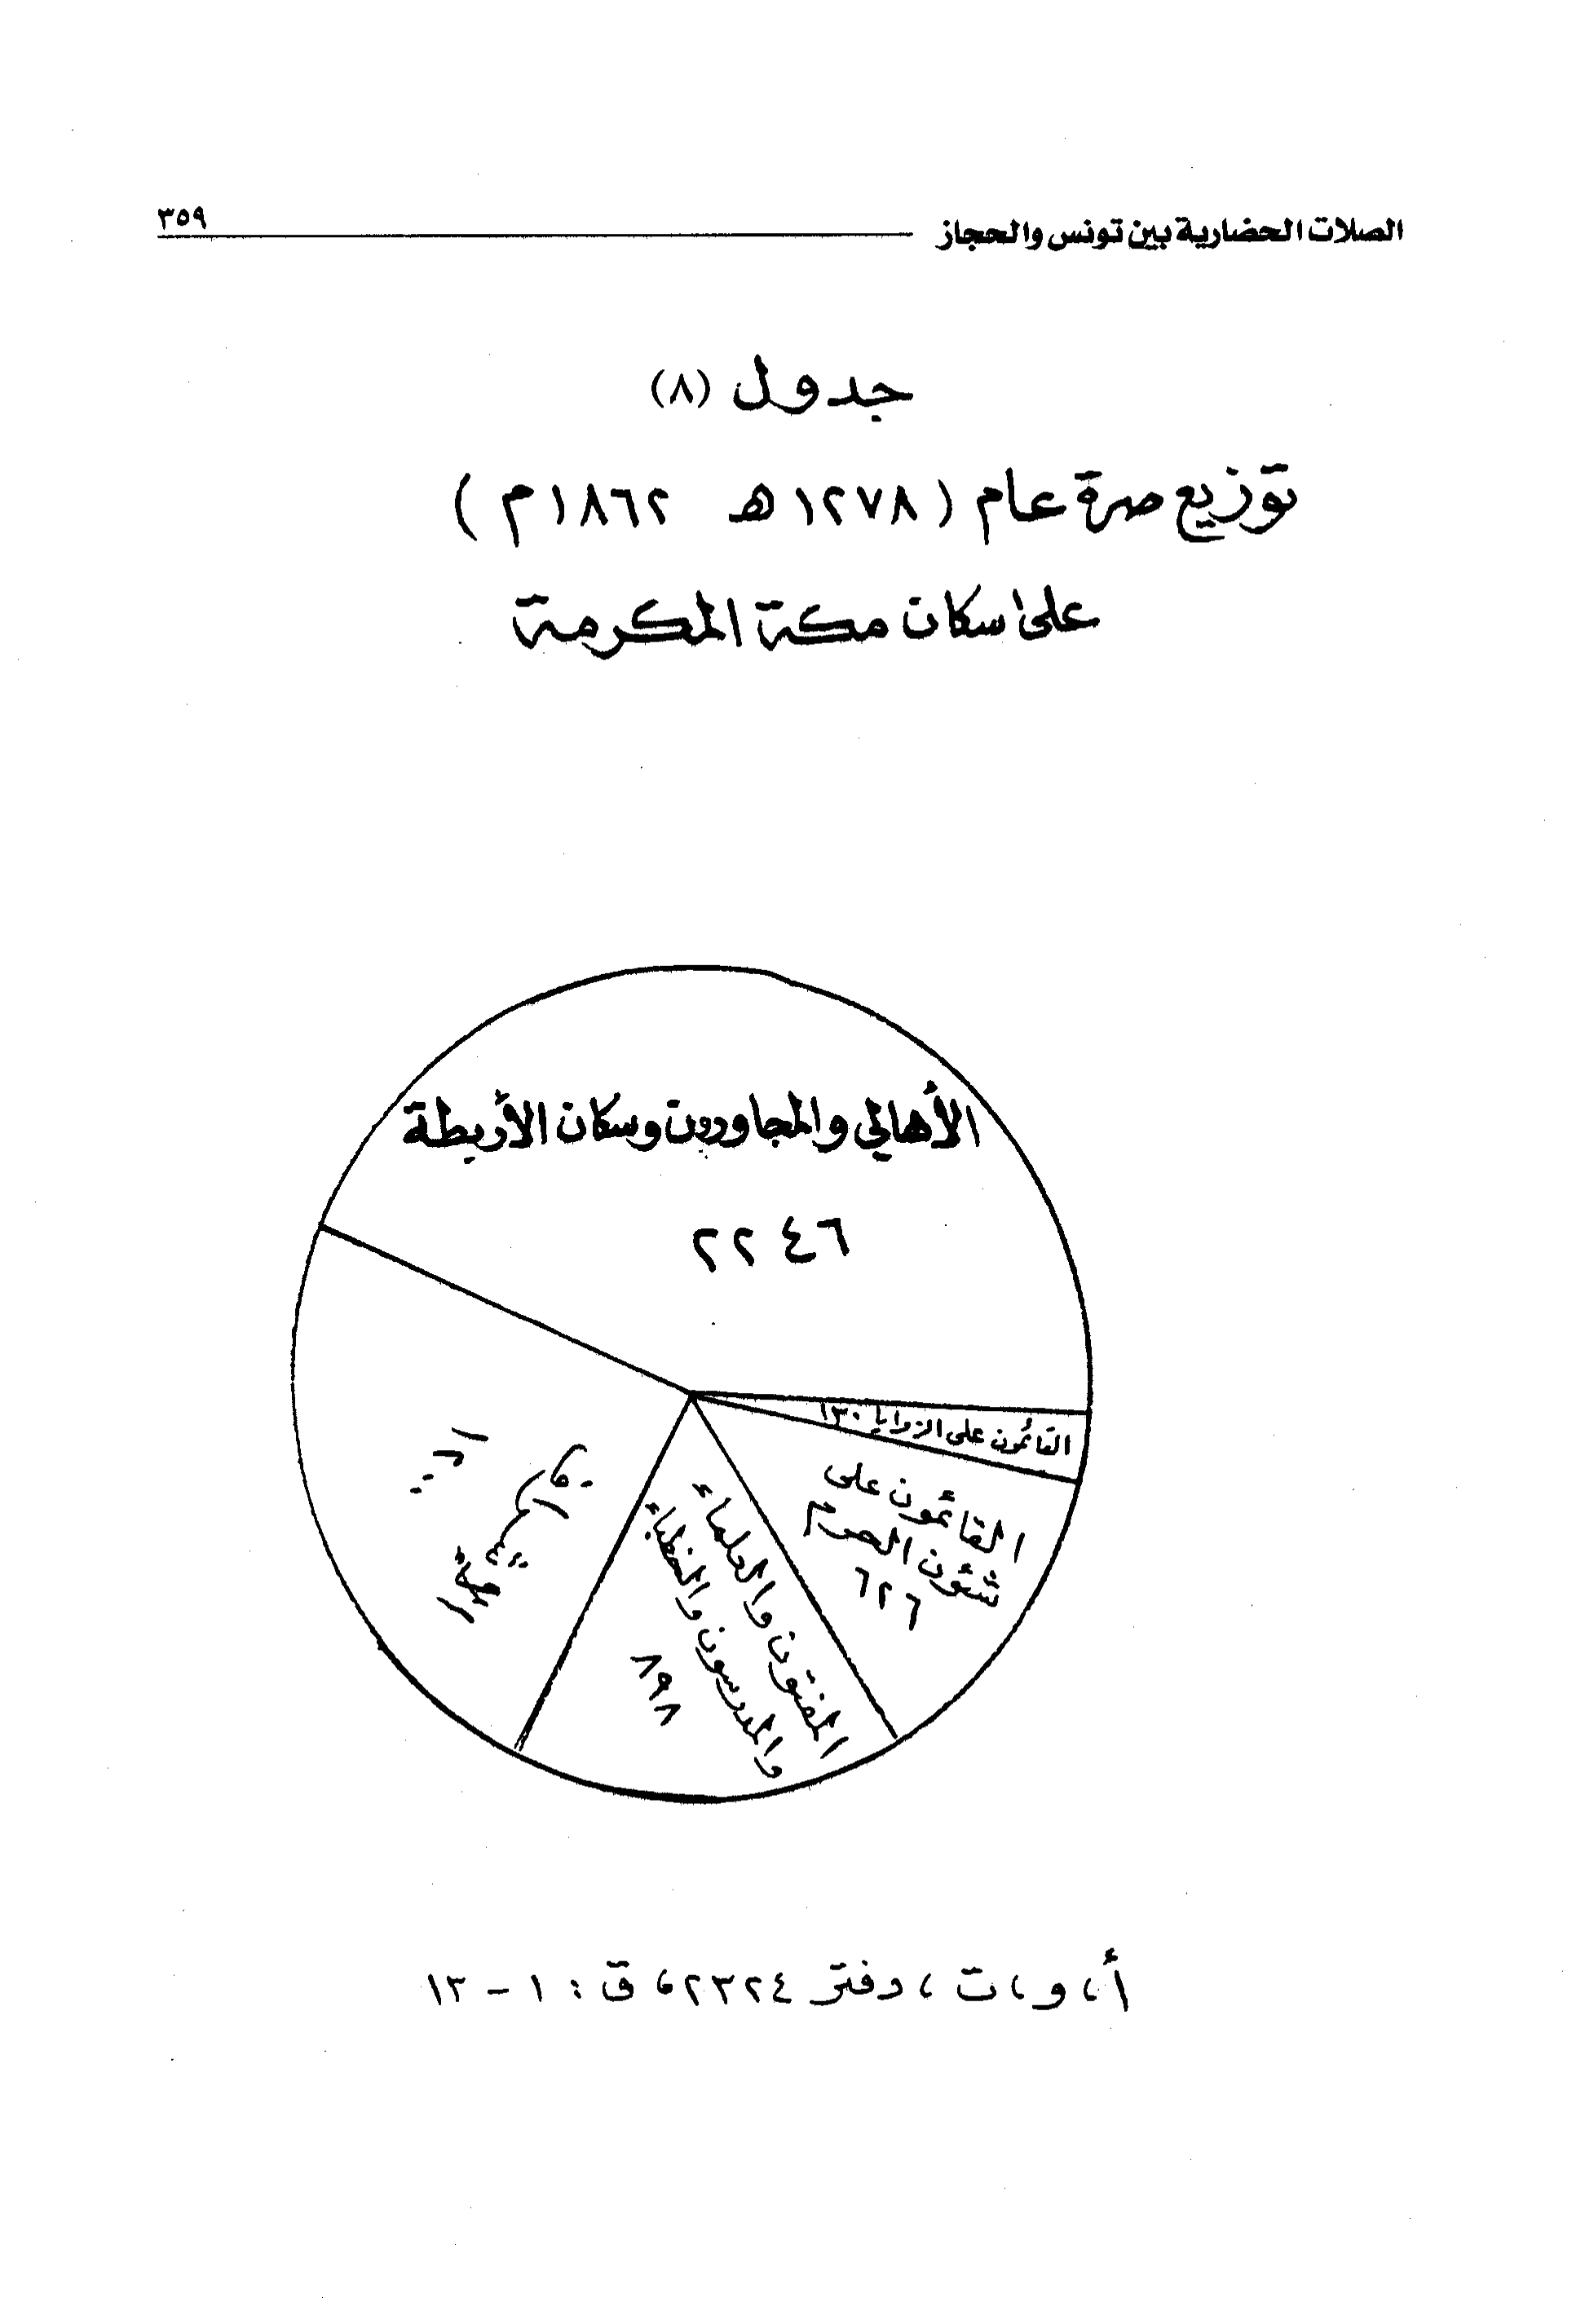 الصلات الحضارية بين تونس والحجاز
٣٥٩
جدول (٨)
توزيع صرة عام (١٢٧٨ هـ ١٨٦٢م)
على سكان مكة المكرمة
الأهالي والمجاورون وسكان الأربطة
٢٢٤٦
القائمون على الزوايا ١٣٠
القائمون على
شئون الحرم
٦٢٦
المفتون والعلماء
والمدرسون والخطباء
٨٩٨
أ، و، ت، دفتر ٢٣٢٤، ق: ١ - ١٣